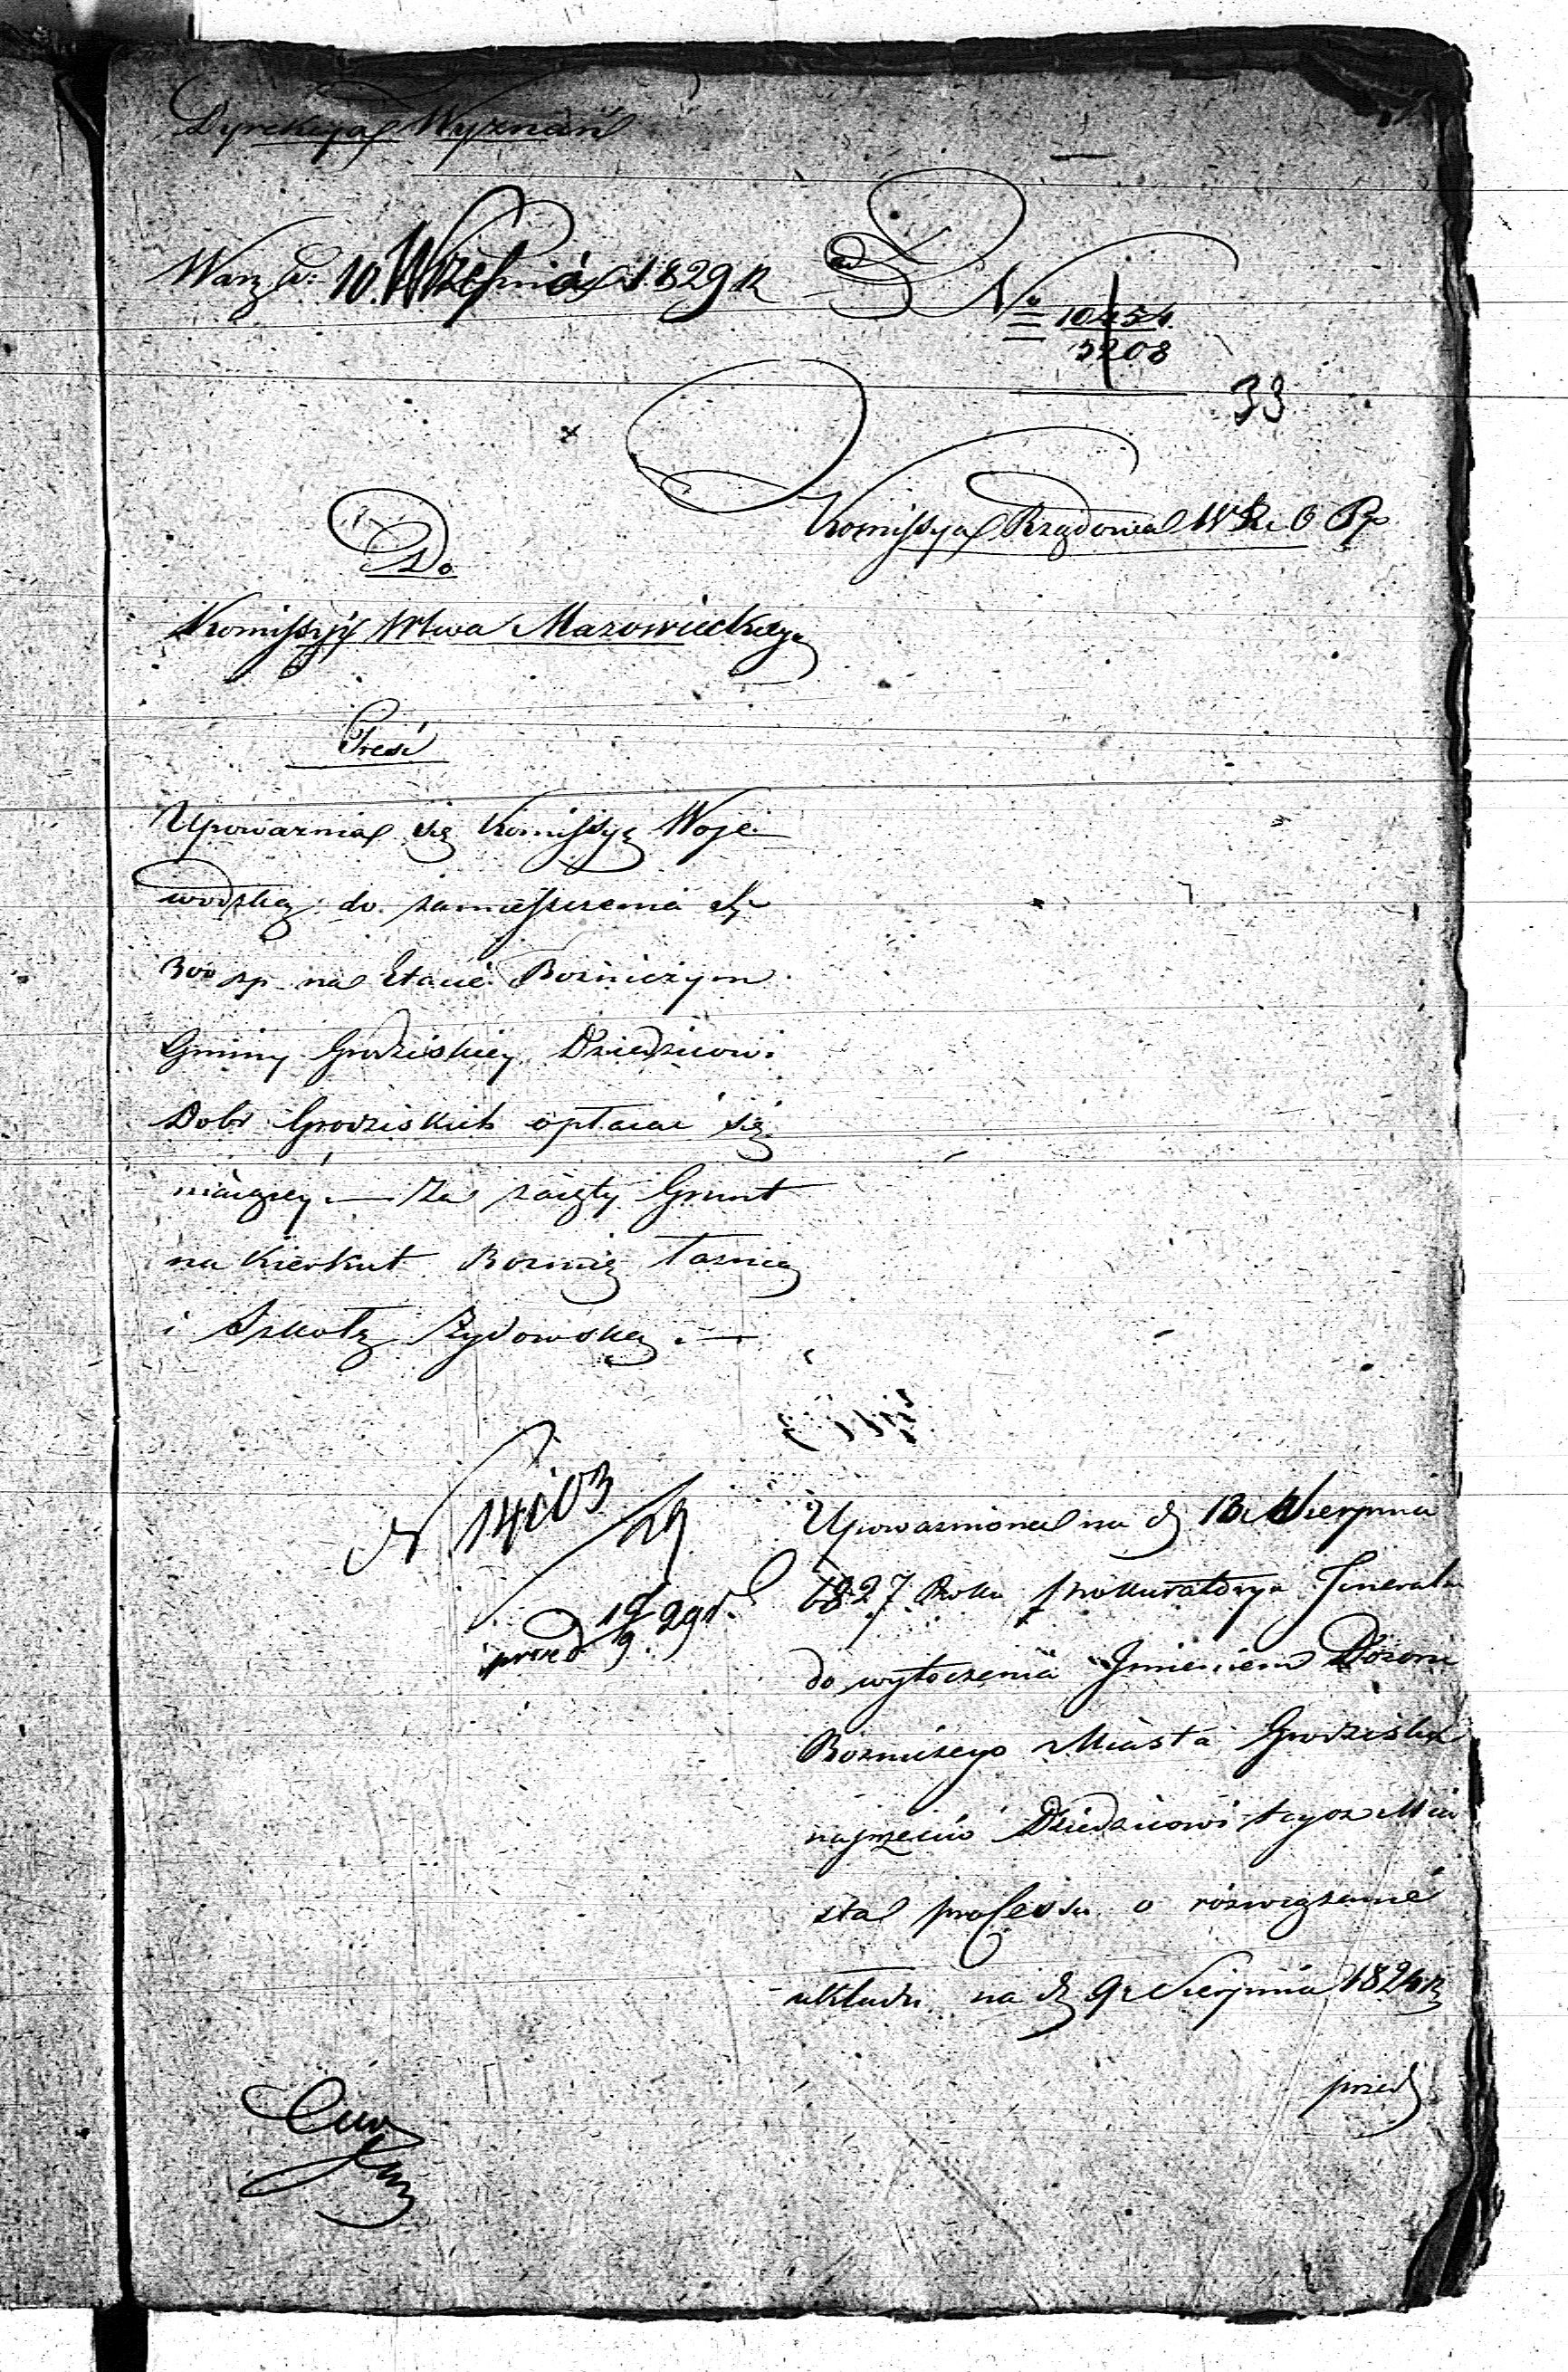 Dyrekcya Wyznań
Warz d: 10. Września 1829 R
ad No 10454
5208
33
Kommissya Rządowa W R i O P
Do
Kommissyi Wtwa Mazowieckiego
Treść
Upoważnia się Kommissyę Woje
wodzką do zamieszczenia
300 zp. na Etacie Bozniczym
Gminy Grodziskiey Dziedzicowi
Dobr Grodziskich opłacać się
maiącey. — Za zaięty Grunt
na Kierkut Boznicę Łaznię
i Szkołę Żydowską. —
N 14103
/29
prod 19/9 29 r.
Upoważniona na d 13 Sierpnia
1827 Roku prokuratorya Jeneralna
do wytoczenia Imieniem Dozoru
Bozniczego Miasta Grodziska
naprzeciw Dziedzicowi tegoż Mia
sta processu o rozwiązanie
układu na d 9 Sierpnia 1824 R
przed